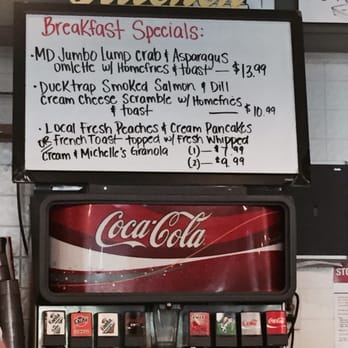 Breakfast Specials:
• MD Jumbo Lump Crab & Asparagus
omlette w/ Homefries & toast — $13.99
• Ducktrap Smoked Salmon & Dill
Cream Cheese Scramble w/ Homefries
& toast — $10.99
• Local Fresh Peaches & Cream Pancakes
or French Toast topped w/ Fresh Whipped
Cream & Michelle's Granola (1) — $7.99
(2) — $9.99
Coca-Cola